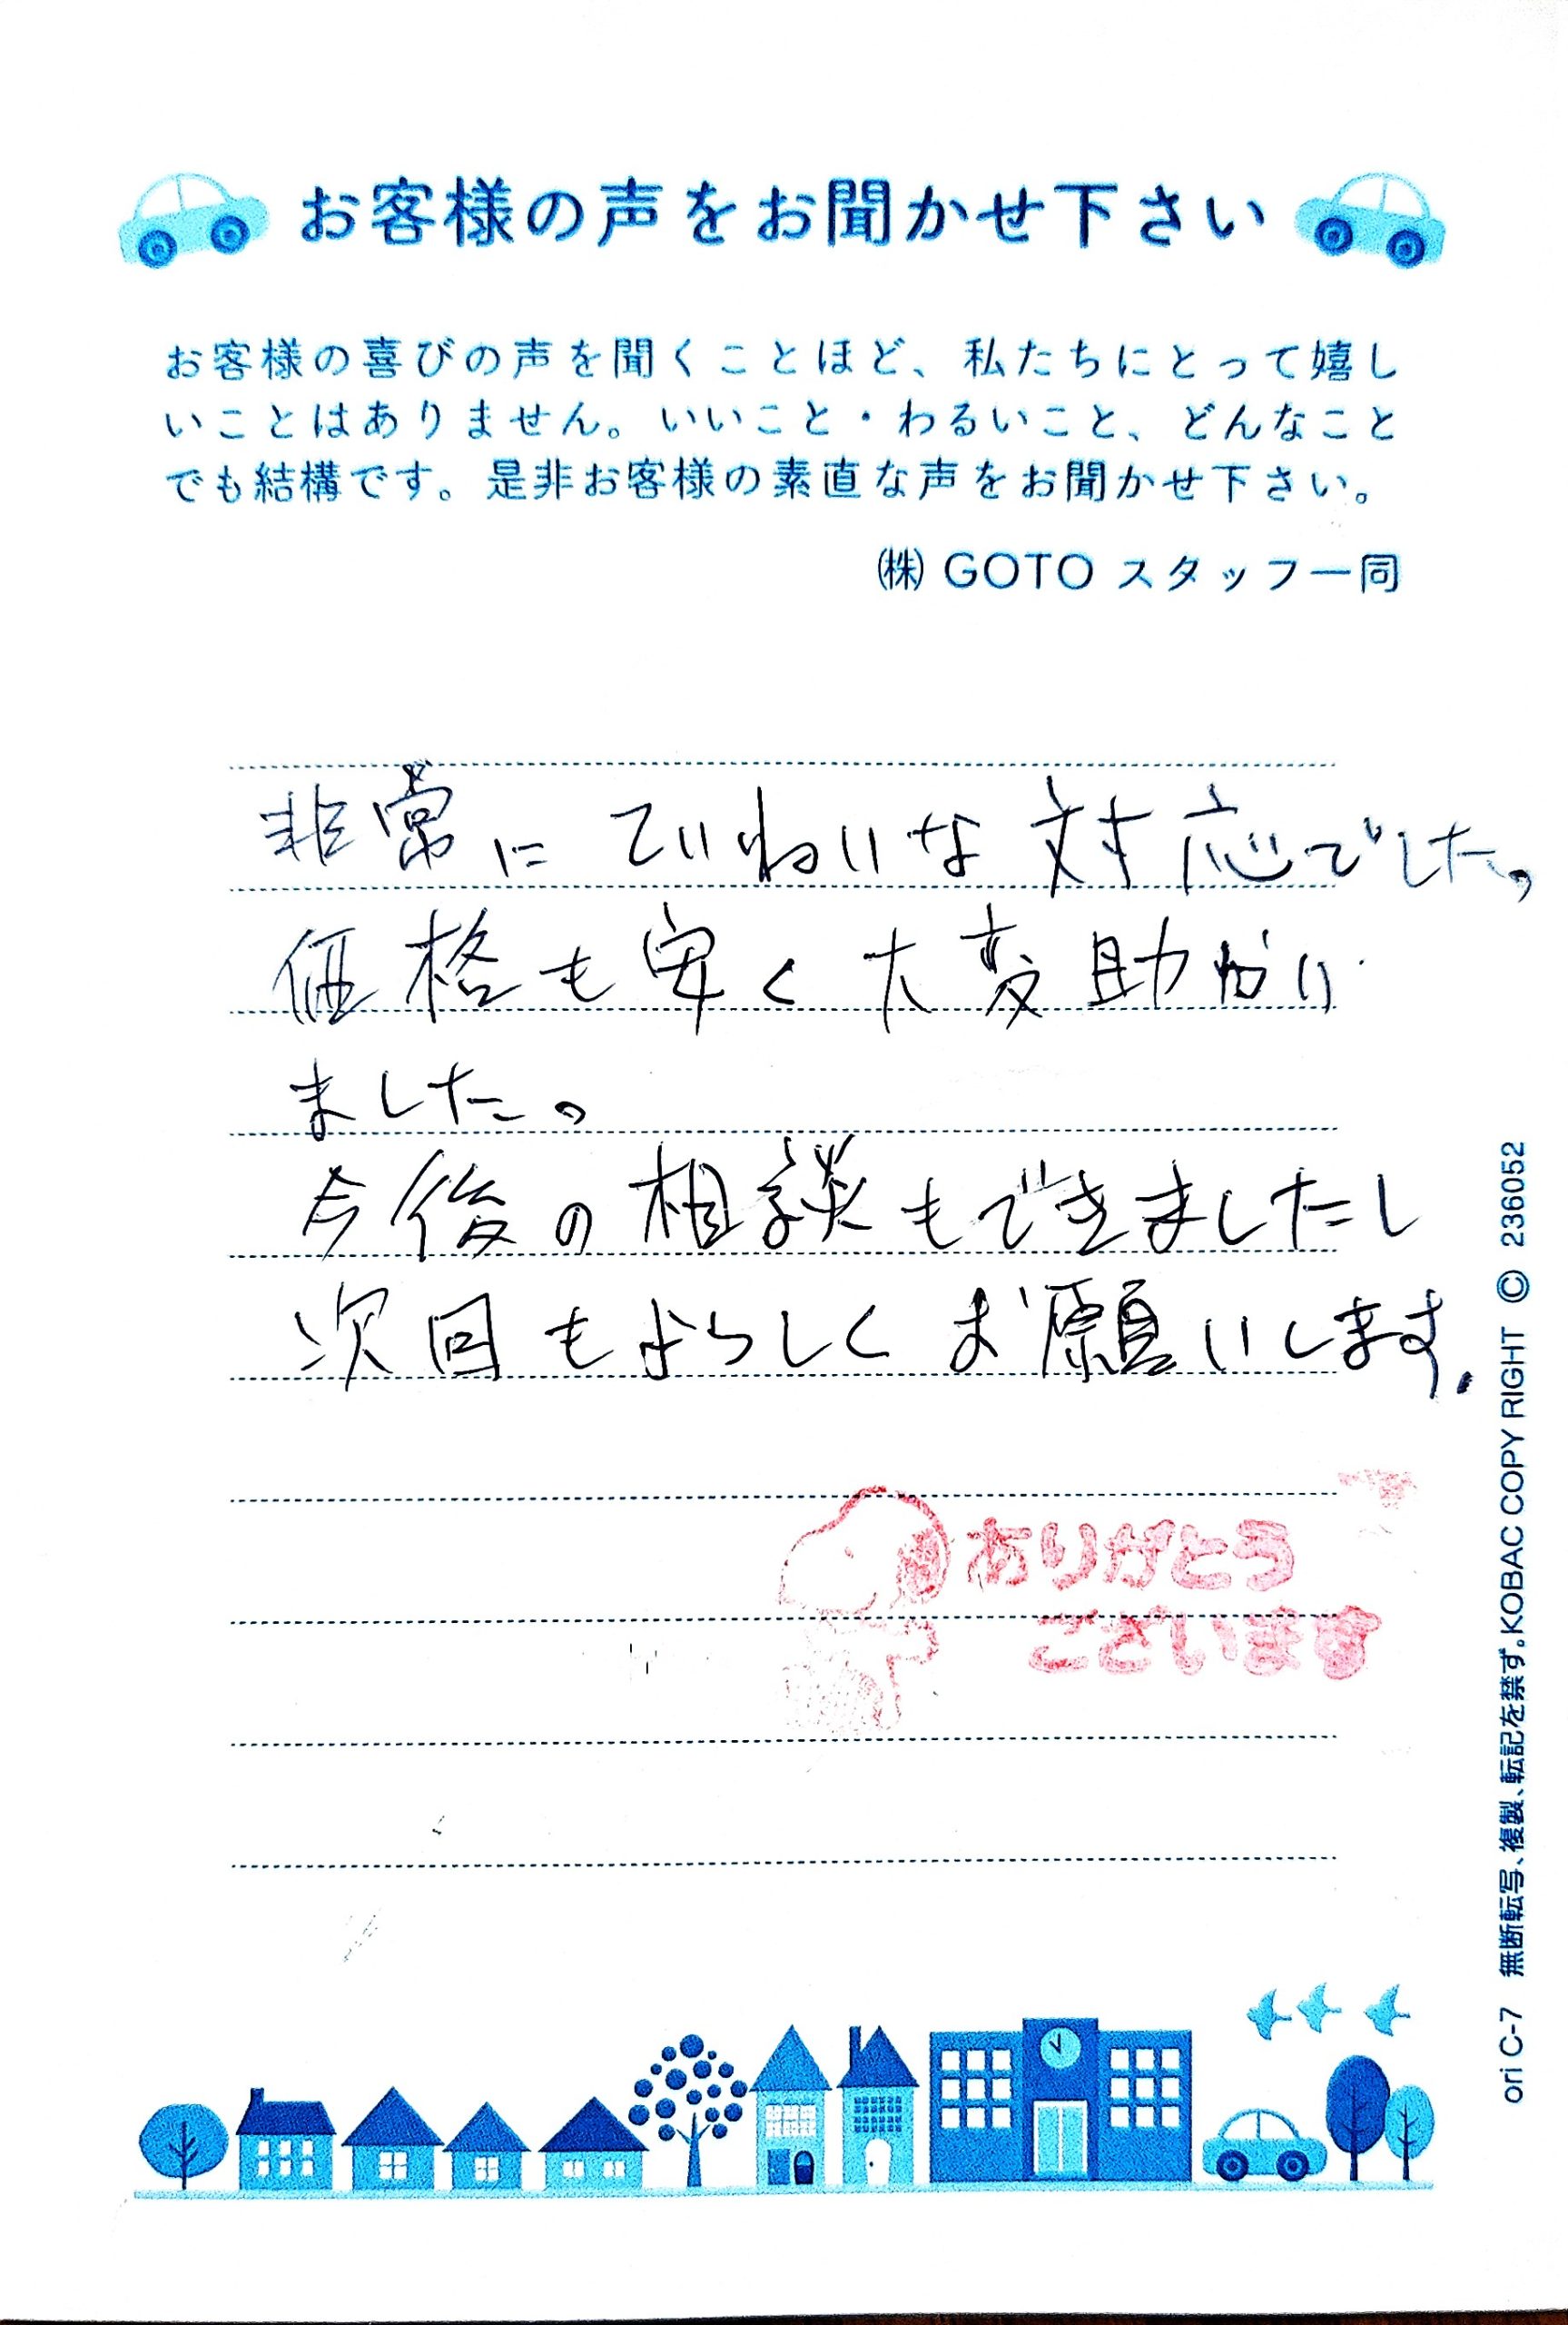 お客様の声をお聞かせ下さい
お客様の喜びの声を聞くことほど、私たちにとって嬉し
いことはありません。いいこと・わるいこと、どんなこと
でも結構です。是非お客様の素直な声をお聞かせ下さい。
㈱ GOTO スタッフ一同
非常にていねいな対応でした。
価格も安く大変助かり
ました。
今後の相談もできましたし
次回もよろしくお願いします.
ありがとう
ございます
ori C-7 無断転写、複製、転記を禁ず。KOBAC COPY RIGHT © 236052